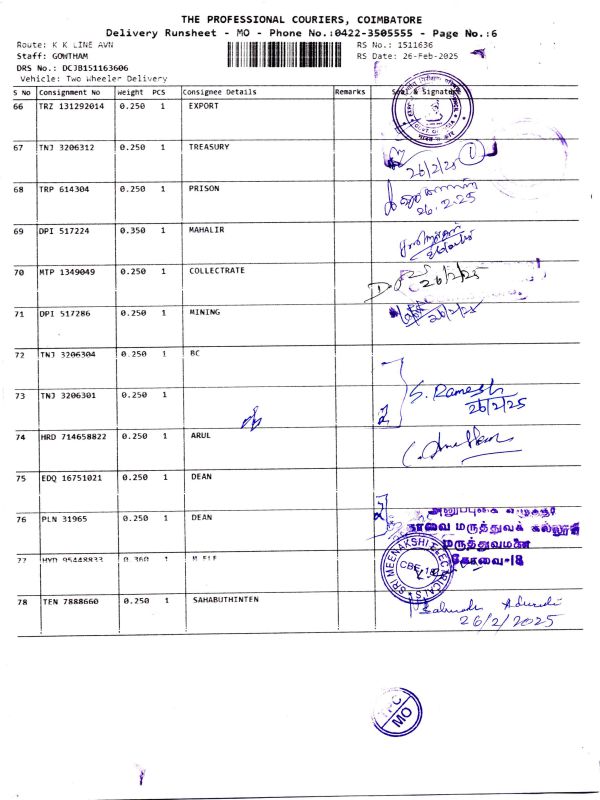 THE PROFESSIONAL COURIERS, COIMBATORE
Delivery Runsheet - MO - Phone No.:0422-3505555 - Page No.:6
Route: K K LINE AVN
RS No.: 1511636
Staff: GOWTHAM
RS Date: 26-Feb-2025
DRS No.: DCJB151163606
Vehicle: Two Wheeler Delivery
S No Consignment No Weight PCS Consignee Details Remarks Seal & Signature
66 TRZ 131292014 0.250 1 EXPORT
67 TNJ 3206312 0.250 1 TREASURY
26/2/25 1
68 TRP 614304 0.250 1 PRISON
26.2.25
69 DPI 517224 0.350 1 MAHALIR
70 MTP 1349049 0.250 1 COLLECTRATE
26/2/25
71 DPI 517286 0.250 1 MINING
26/2/25
72 TNJ 3206304 0.250 1 BC
73 TNJ 3206301 0.250 1
2 S. Ramesh
26/2/25
74 HRD 714658822 0.250 1 ARUL
75 EDQ 16751021 0.250 1 DEAN
76 PLN 31965 0.250 1 DEAN
2
கோவை மருத்துவக் கல்லூரி
மருத்துவமனை
கோவை-18
77 HYD 95448833 0.360 1
SRI MEENAKSHI ELECTRICALS
CBE-18
78 TEN 7888660 0.250 1 SAHABUTHINTEN
26/2/2025
TPC
MO